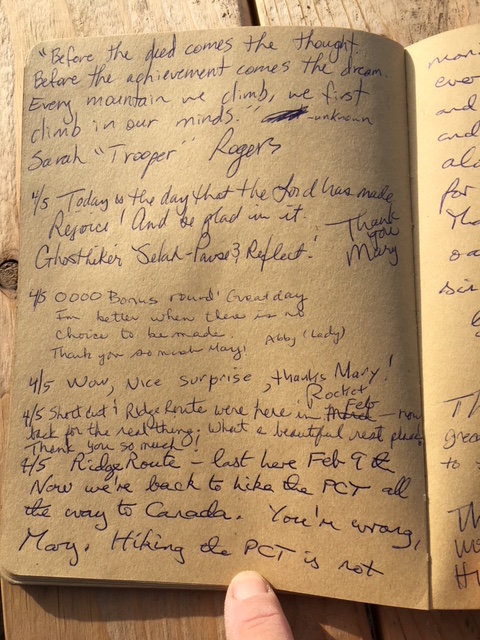 "Before the deed comes the thought.
Before the achievement comes the dream.
Every mountain we climb, we first
climb in our minds." -unknown
Sarah "Trooper" Rogers
4/5 Today is the day that the Lord has made
Rejoice! And be glad in it.
Ghosthiker "Selah-Pause & Reflect." Thank
you
Mary
4/5 0000 Bonus round! Great day
I'm better when there is no
choice to be made.
Thank you so much Mary! Abby (Lady)
4/5 Wow, Nice surprise, thanks Mary!
Rocket
4/5 Shortcut & RidgeRoute were here in March Feb - now
back for the real thing. What a beautiful rest place!
Thank you so much!
4/5 RidgeRoute - last here Feb 9th
Now we're back to hike the PCT all
the way to Canada. You're wrong,
Mary. Hiking the PCT is not
mor
ever
and
and
alo
for
Th
oa
sin
Th
grea
to
Th
wo
H